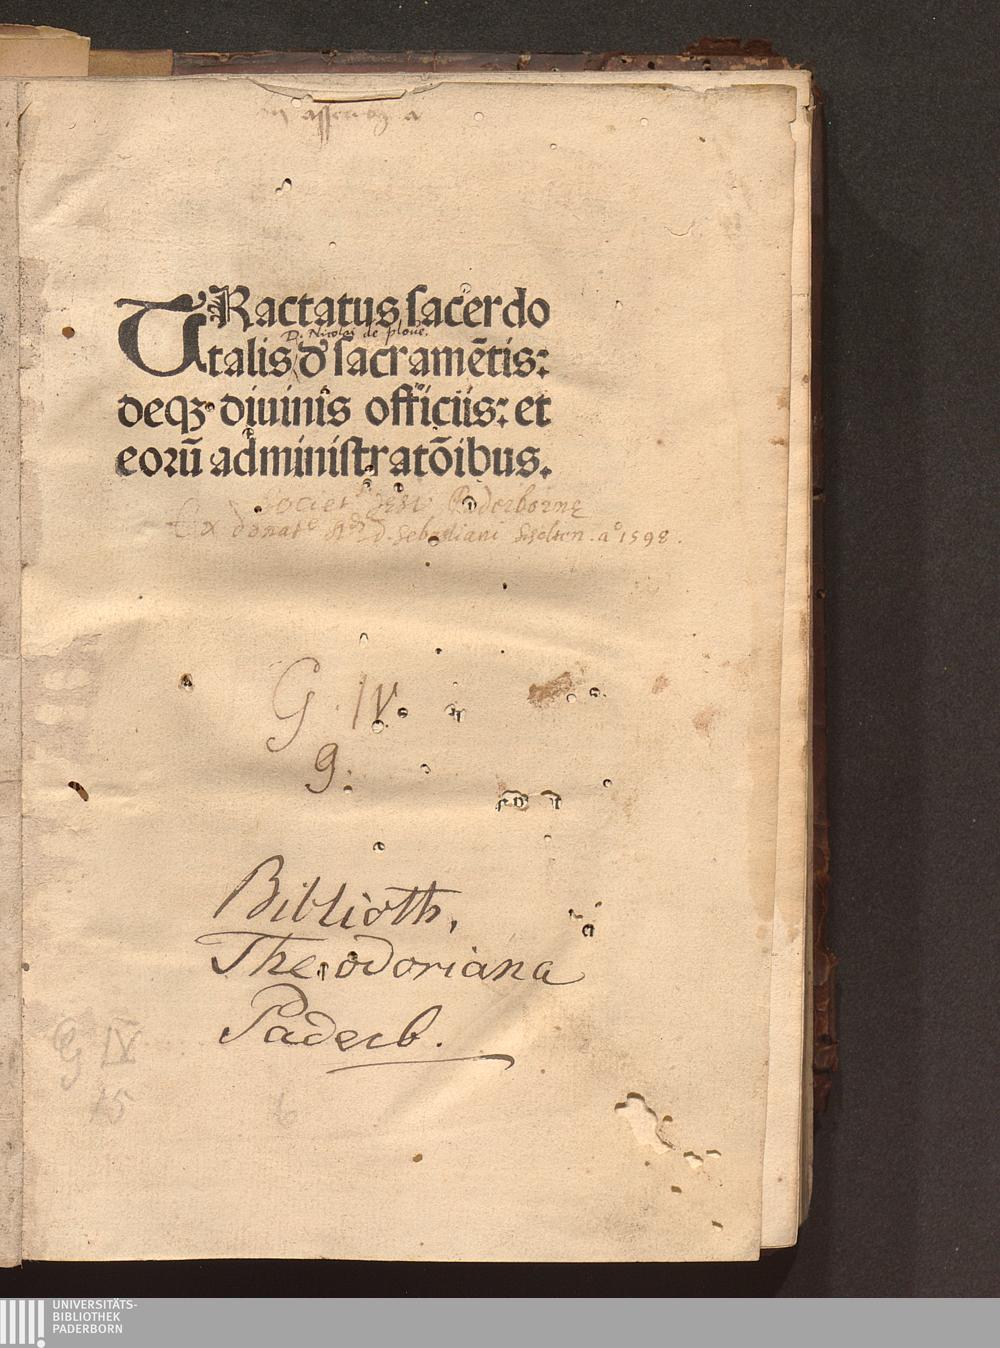 TRactatus sacerdo
D. Nicolai de ploue.
talis d' sacramētis:
deqꝫ diuinis officiis: et
eorū administratōibus.
Societ. Jesu Paderbornę
Ex donat.e Rdi D. Sebastiani a.o 1598.
G. IV.
9.
Biblioth.
Theodoriana
Paderb.
G IV
15 6
UNIVERSITÄTS-
BIBLIOTHEK
PADERBORN